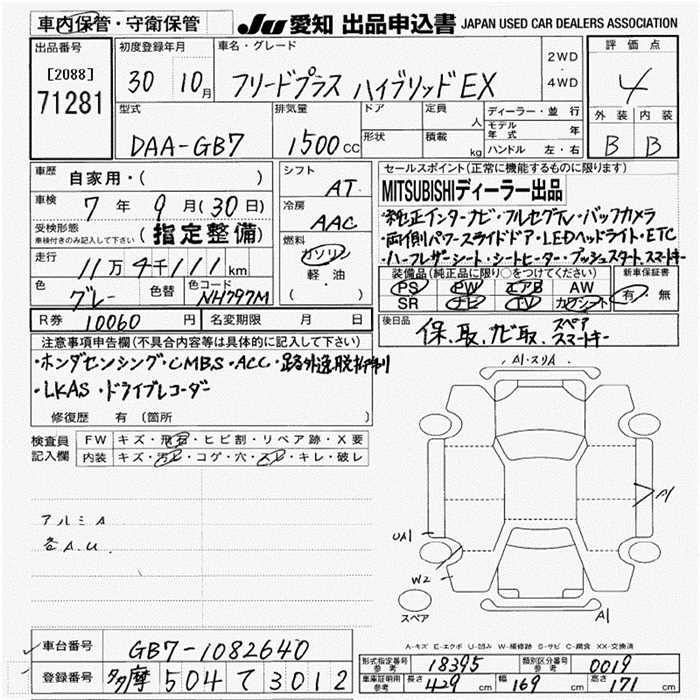 車内保管・守衛保管
JU 愛知 出品申込書 JAPAN USED CAR DEALERS ASSOCIATION
出品番号 初度登録年月 車名・グレード 評価点
[2088] 71281 30 10月 フリードプラス ハイブリッド EX 2WD ・ 4WD 4
型式 排気量 ドア 定員 人 ディーラー・並行 外装 内装
DAA-GB7 1500cc 形状 積載 kg モデル年式 年 B B
ハンドル 左・右
車歴 自家用・( ) シフト AT セールスポイント(正常に機能するものに限ります)
車検 7年 9月(30日) 冷房 AAC MITSUBISHIディーラー出品
受検形態 車検付きのみ記入して下さい (指定整備) ・純正インターナビ・フルセグTV・バックカメラ
燃料 ガソリン ・両側パワースライドドア・LEDヘッドライト・ETC
走行 11万4千111km 軽油 ・ハーフレザーシート・シートヒーター・プッシュスタート、スマートキー
色 グレー 色替 色コード NH797M ( ) 装備品(純正品に限り○をつけてください) 新車保証書
PS PW エアB AW 有・無
SR ナビ TV カワシート
R券 10060円 名変期限 月 日 後日品 保、取、ナビ取、スペアスマートキー
注意事項申告欄(不具合内容等は具体的に記入して下さい)
・ホンダセンシング・CMBS・ACC・路外逸脱抑制
・LKAS・ドライブレコーダー
修復歴 有(箇所
検査員記入欄 FW キズ・飛石・ヒビ割・リペア跡・X要
内装 キズ・汚レ・コゲ・穴・スレ・キレ・破レ
A1・スリA
アルミA
各A.U.
A1
UA1
W2
スペア
A1
A-キズ E-エクボ U-凹み W-補修跡 S-サビ C-腐食 XX-交換済
車台番号 GB7-1082640
型式指定番号 参考 18395 類別区分番号 参考 0019
登録番号 多摩 504 て 3012
車庫証明用 参考 長さ 429 cm 幅 169 cm 高さ 171 cm